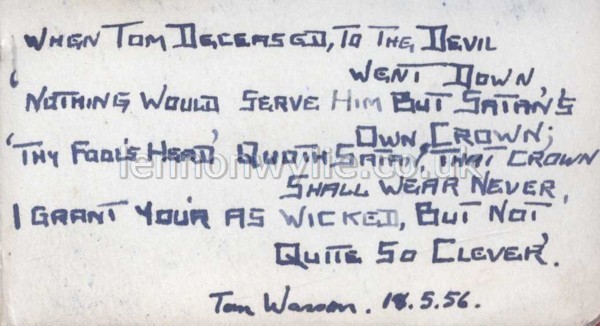 WHEN TOM DECEASED, TO THE DEVIL
WENT DOWN,
'NOTHING WOULD SERVE HIM BUT SATAN'S
OWN CROWN;
'THY FOOL'S HEAD' QUOTH SATAN, 'THAT CROWN
SHALL WEAR NEVER,
I GRANT YOUR AS WICKED, BUT NOT
QUITE SO CLEVER'.
Tom 18.5.56.
lennonwylie.co.uk